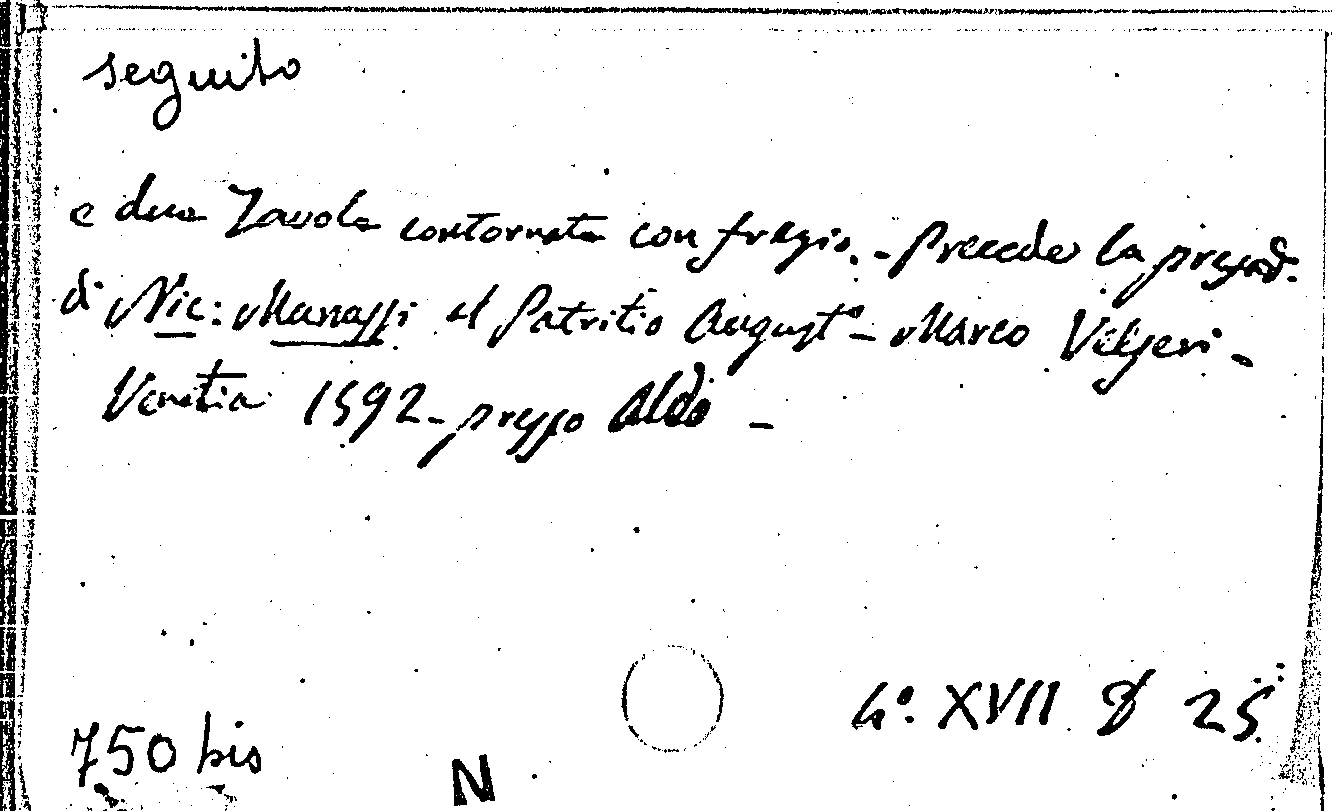 seguito
e due Tavole contornate con fregio. - Precede la prefad.
di Nic: Manassi al Patritio August° - Marco Velseri -
Venetia 1592 - presso Aldo -
4°. XVII 25
750 bis
N